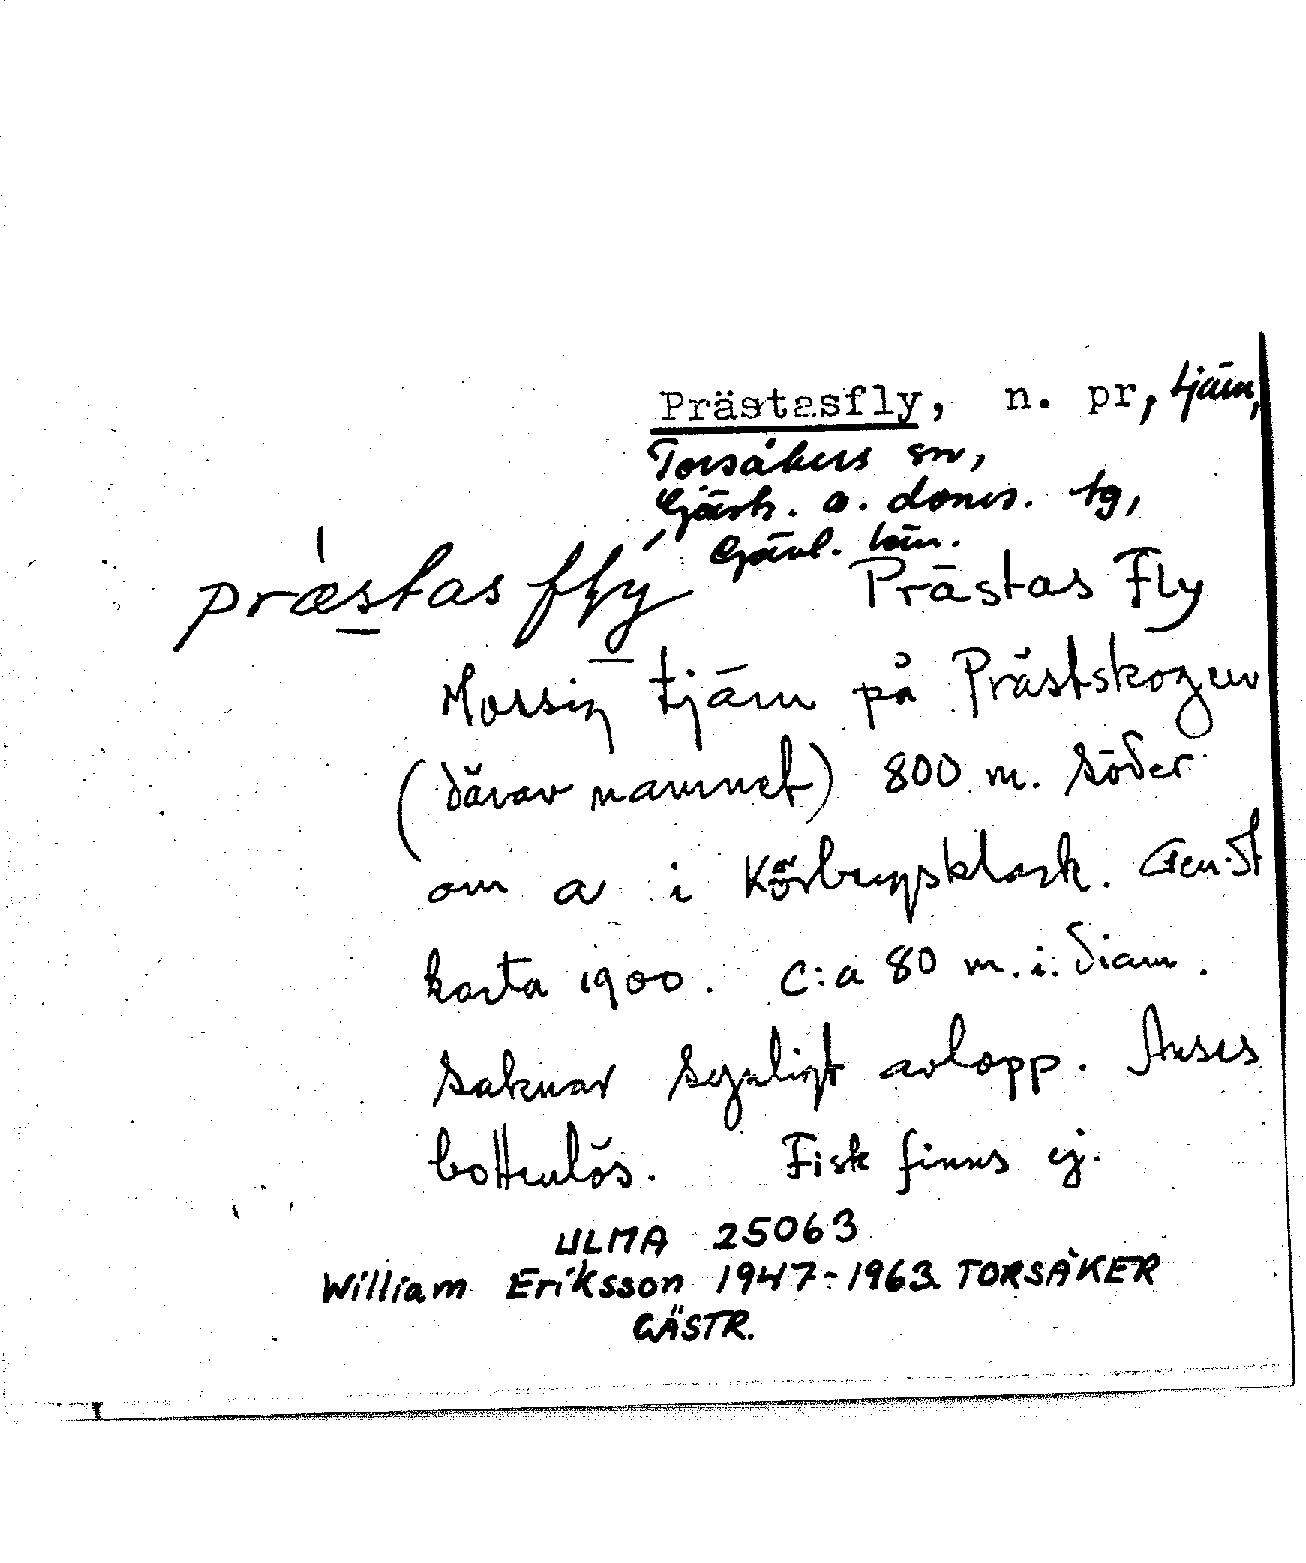 Prästasfly, n. pr, tjärn,
Torsåkers sn,
Gästr. ö. doms. tg,
Gävl. län.
præstas fly Prästas Fly
Mossig tjärn på Prästskogen
(därav namnet) 800 m. söder
om a i Körbergsklack. Gen. St
karta 1900. C:a 80 m. i. diam.
Saknar synligt avlopp. Anses
bottenlös. Fisk finns ej.
ULMA 25063
William Eriksson 1947-1963 TORSÅKER
GÄSTR.